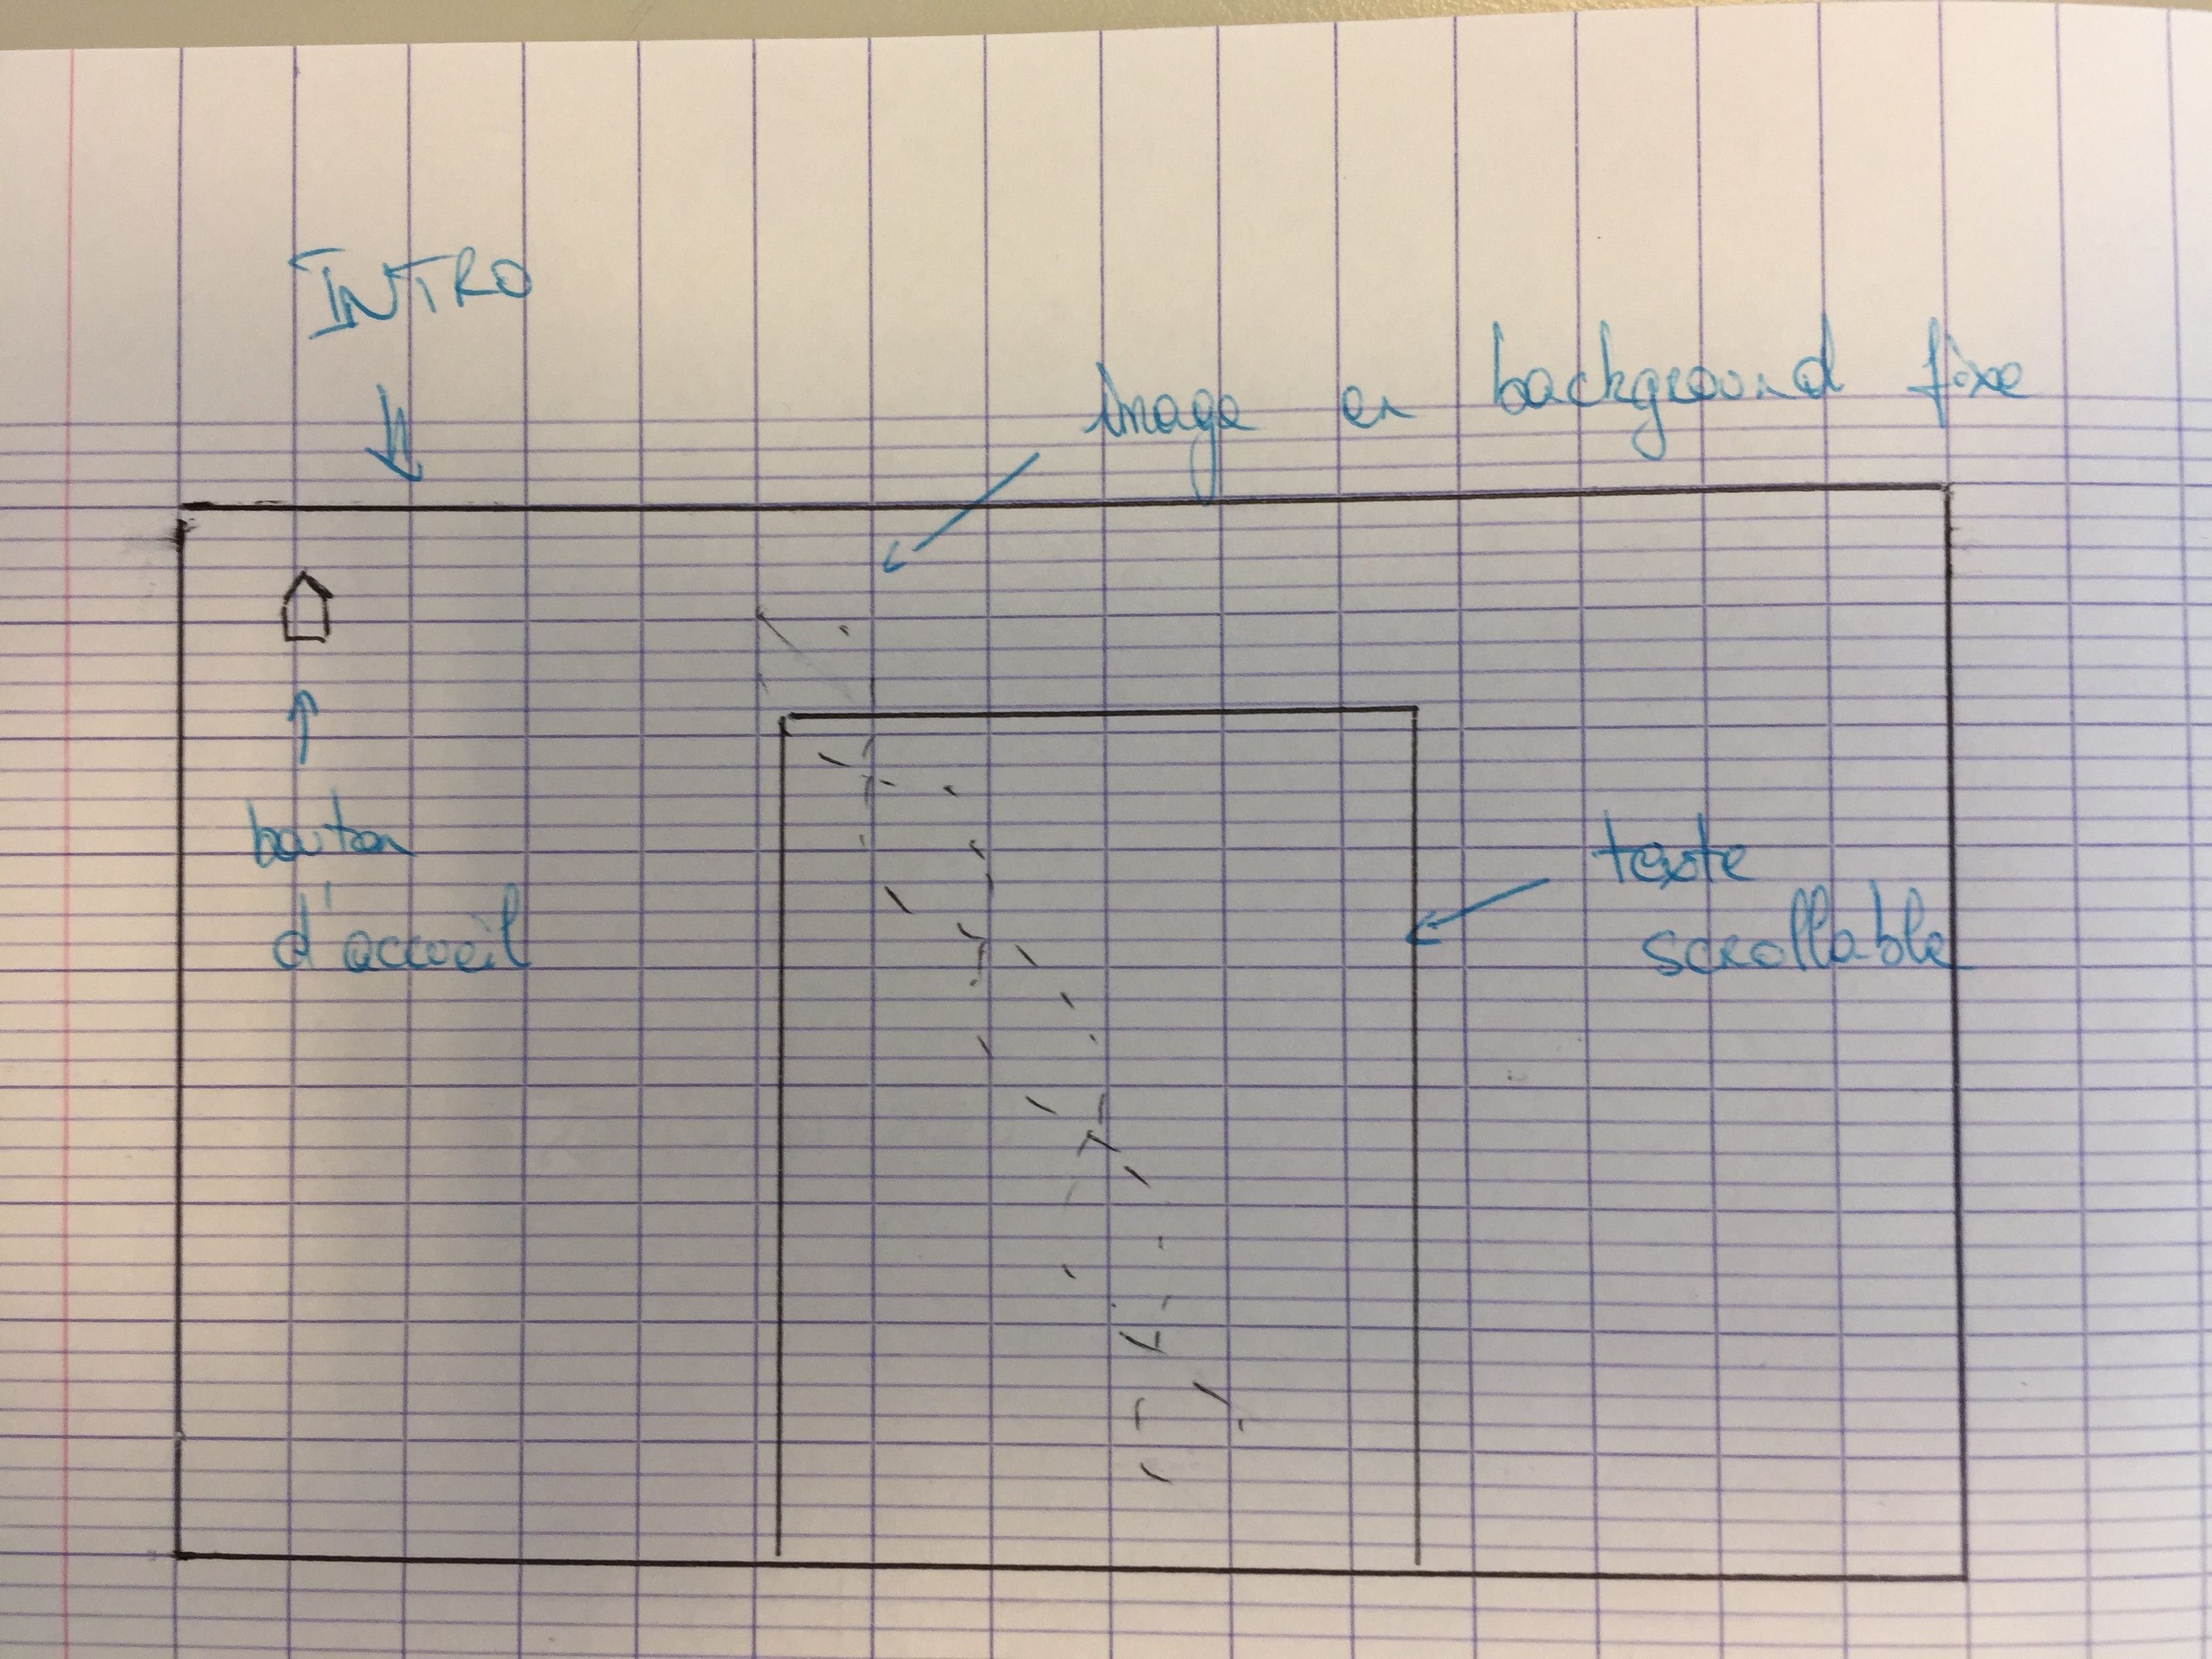 INTRO
image en background fixe
bouton
d'accueil
texte
scrollable